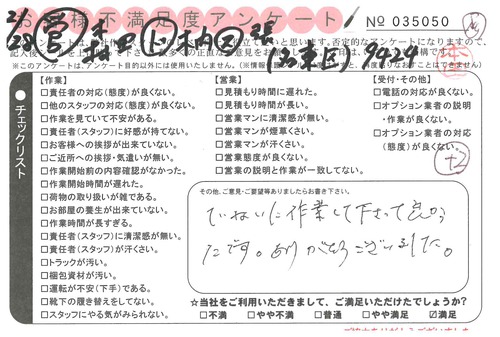 お客様不満足度アンケート No 035050
※このアンケートは、アンケート目的以外には使用いたしません。
チェックリスト
【作業】
□責任者の対応(態度)が良くない。
□他のスタッフの対応(態度)が良くない。
□作業を見ていて不安がある。
□責任者(スタッフ)に好感が持てない。
□お客様への挨拶が出来ていない。
□ご近所への挨拶・気遣いが無い。
□作業開始前の内容確認がなかった。
□作業開始時間が遅れた。
□荷物の取り扱いが雑である。
□お部屋の養生が出来ていない。
□作業時間が長すぎる。
□責任者(スタッフ)に清潔感が無い。
□責任者(スタッフ)が汗くさい。
□トラックが汚い。
□梱包資材が汚い。
□運転が不安(下手)である。
□靴下の履き替えをしてない。
□スタッフにやる気がみられない。
【営業】
□見積もり時間に遅れた。
□見積もり時間が長い。
□営業マンに清潔感が無い。
□営業マンが煙草くさい。
□営業マンが汗くさい。
□営業態度が良くない。
□営業の説明と作業が一致してない。
【受付・その他】
□電話の対応が良くない。
□オプション業者の説明
・作業が良くない。
□オプション業者の対応
(態度)が良くない。
その他、ご意見・ご要望等ありましたらお書き下さい。
ていねいに作業して下さって良かっ
たです。ありがとうございました。
☆当社をご利用いただきまして、ご満足いただけたでしょうか?
□不満 □やや不満 □普通 □やや満足 ☑満足